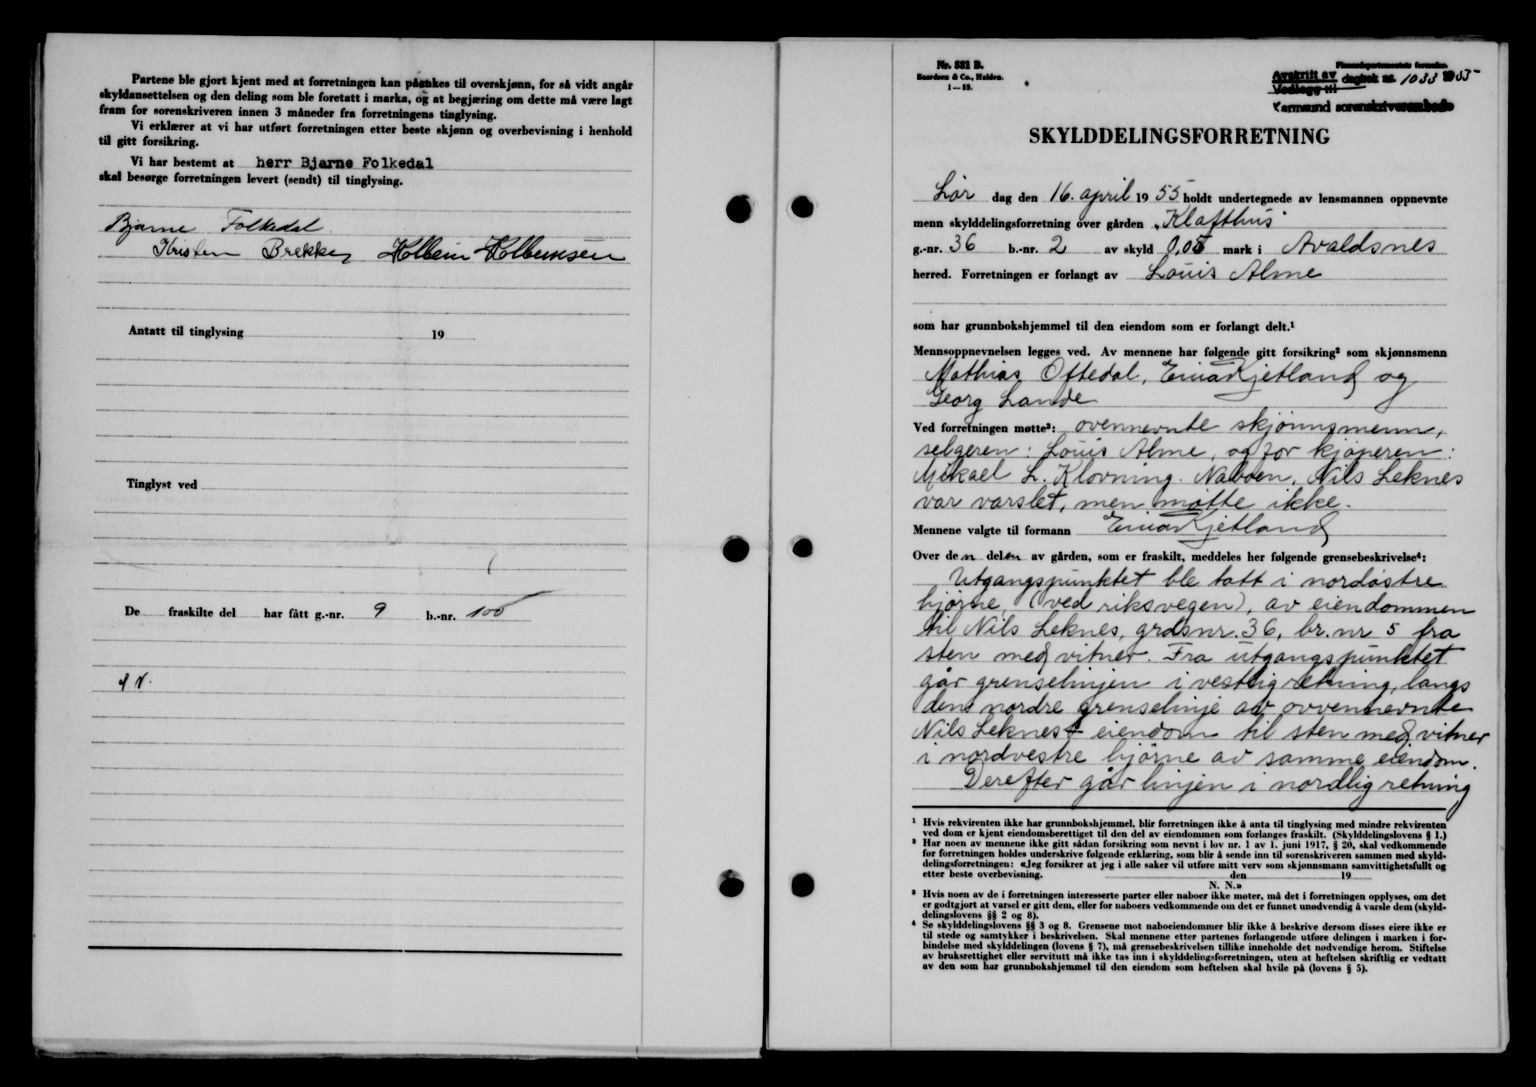 Partene ble gjort kjent med at forretningen kan påankes til overskjønn, for så vidt angår
skyldansettelsen og den deling som ble foretatt i marka, og at begjæring om dette må være lagt
fram for sorenskriveren innen 3 måneder fra forretningens tinglysing.
Vi erklærer at vi har utført forretningen etter beste skjønn og overbevisning i henhold
til gitt forsikring.
Vi har bestemt at herr Bjarne Folkedal
skal besørge forretningen levert (sendt) til tinglysing.
Bjarne Folkedal
Kristen Brekke Holbein Kolbeinsen
Antatt til tinglysing 19
Tinglyst ved
De fraskilte del har fått g.-nr. 9 b.-nr. 100
Nr. 531 B.
Baardsen & Co., Halden.
1—53.
Finansdepartementets formular.
Avskrift av dagbok nr. 1033 1955
Vedlegg til
Karmsund sorenskriverembede
SKYLDDELINGSFORRETNING
Lør dag den 16. april 1955 holdt undertegnede av lensmannen oppnevnte
menn skylddelingsforretning over gården "Klafthus"
g.-nr. 36 b.-nr. 2 av skyld 0,08 mark i Avaldsnes
herred. Forretningen er forlangt av Louis Alme
som har grunnbokshjemmel til den eiendom som er forlangt delt.¹
Mennsoppnevnelsen legges ved. Av mennene har følgende gitt forsikring² som skjønnsmenn
Mathias Oftedal, Einar Kjetland og
Georg Lande
Ved forretningen møtte³: ovennevnte skjønnsmenn,
selgeren: Louis Alme, og for kjøperen:
Mikael L. Klovning. Naboen, Nils Leknes
var varslet, men møtte ikke.
Mennene valgte til formann Einar Kjetland
Over den delen av gården, som er fraskilt, meddeles her følgende grensebeskrivelse⁴:
Utgangspunktet ble tatt i nordøstre
hjørne, (ved riksvegen), av eiendommen
til Nils Leknes, grdsnr. 36, br. nr 5 fra
sten med vitner. Fra utgangspunktet
går grenselinjen i vestlig retning, langs
den nordre grenselinje av ovvennevnte
Nils Leknes eiendom til sten med vitner
i nordvestre hjørne av samme eiendom.
Derefter går linjen i nordlig retning
¹ Hvis rekvirenten ikke har grunnbokshjemmel, blir forretningen ikke å anta til tinglysing med mindre rekvirenten
ved dom er kjent eiendomsberettiget til den del av eiendommen som forlanges fraskilt. (Skylddelingslovens § 1.)
² Har noen av mennene ikke gitt sådan forsikring som nevnt i lov nr. 1 av 1. juni 1917, § 20, skal vedkommende
før forretningen holdes underskrive følgende erklæring, som blir å sende inn til sorenskriveren sammen med skyld-
delingsforretningen: «Jeg forsikrer at jeg i alle saker vil utføre mitt verv som skjønnsmann samvittighetsfullt og
etter beste overbevisning. den 19
N. N.»
³ Hvis noen av de i forretningen interesserte parter eller naboer ikke møter, må det i forretningen opplyses, om det
er godtgjort at varsel er gitt dem, eller for naboers vedkommende om det er funnet unødvendig å varsle dem (skyld-
delingslovens §§ 2 og 8).
⁴ Se skylddelingslovens §§ 3 og 8. Grensene mot naboeiendommer blir ikke å beskrive dersom disses eiere ikke er
til stede og samtykker i beskrivelsen. Skal mennene etter partenes forlangende utføre delingen i marken i for-
bindelse med skylddelingen (lovens § 7), må grensebeskrivelsen tillike inneholde det nødvendige herom. Stiftelse
av bruksrettighet eller servitutt må ikke tas inn i skylddelingsforretningen, uten at heftelsen skriftlig er vedtatt
av den som har grunnbokshjemmel til den eiendom som heftelsen skal hvile på (lovens § 5).